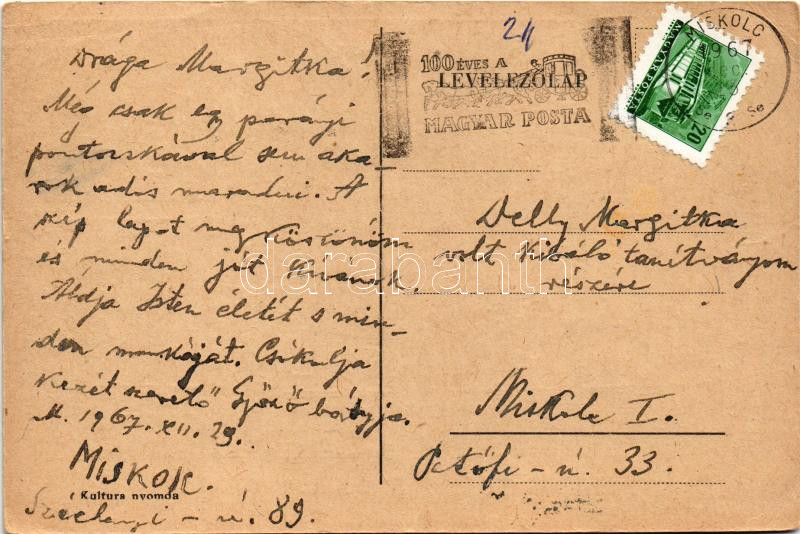 Drága Margitka!
Még csak egy parányi
pontocskával sem aka-
rok adós maradni. A
szép lapot megköszönöm
és minden jót kívánok.
Áldja Isten életét s min-
den munkáját. Csókolja
kezét szerető Győző bátyja.
M. 1967. XII. 29.
MISKOK.
Kultura nyomda
Széchenyi - u. 89.
24
100 ÉVES A
LEVELEZŐLAP
MAGYAR POSTA
MISKOLC
967
MAGYAR POSTA
20
Delly Margitka
volt kiváló tanítványom
részére
Miskolc I.
Petőfi - u. 33.
darabanth